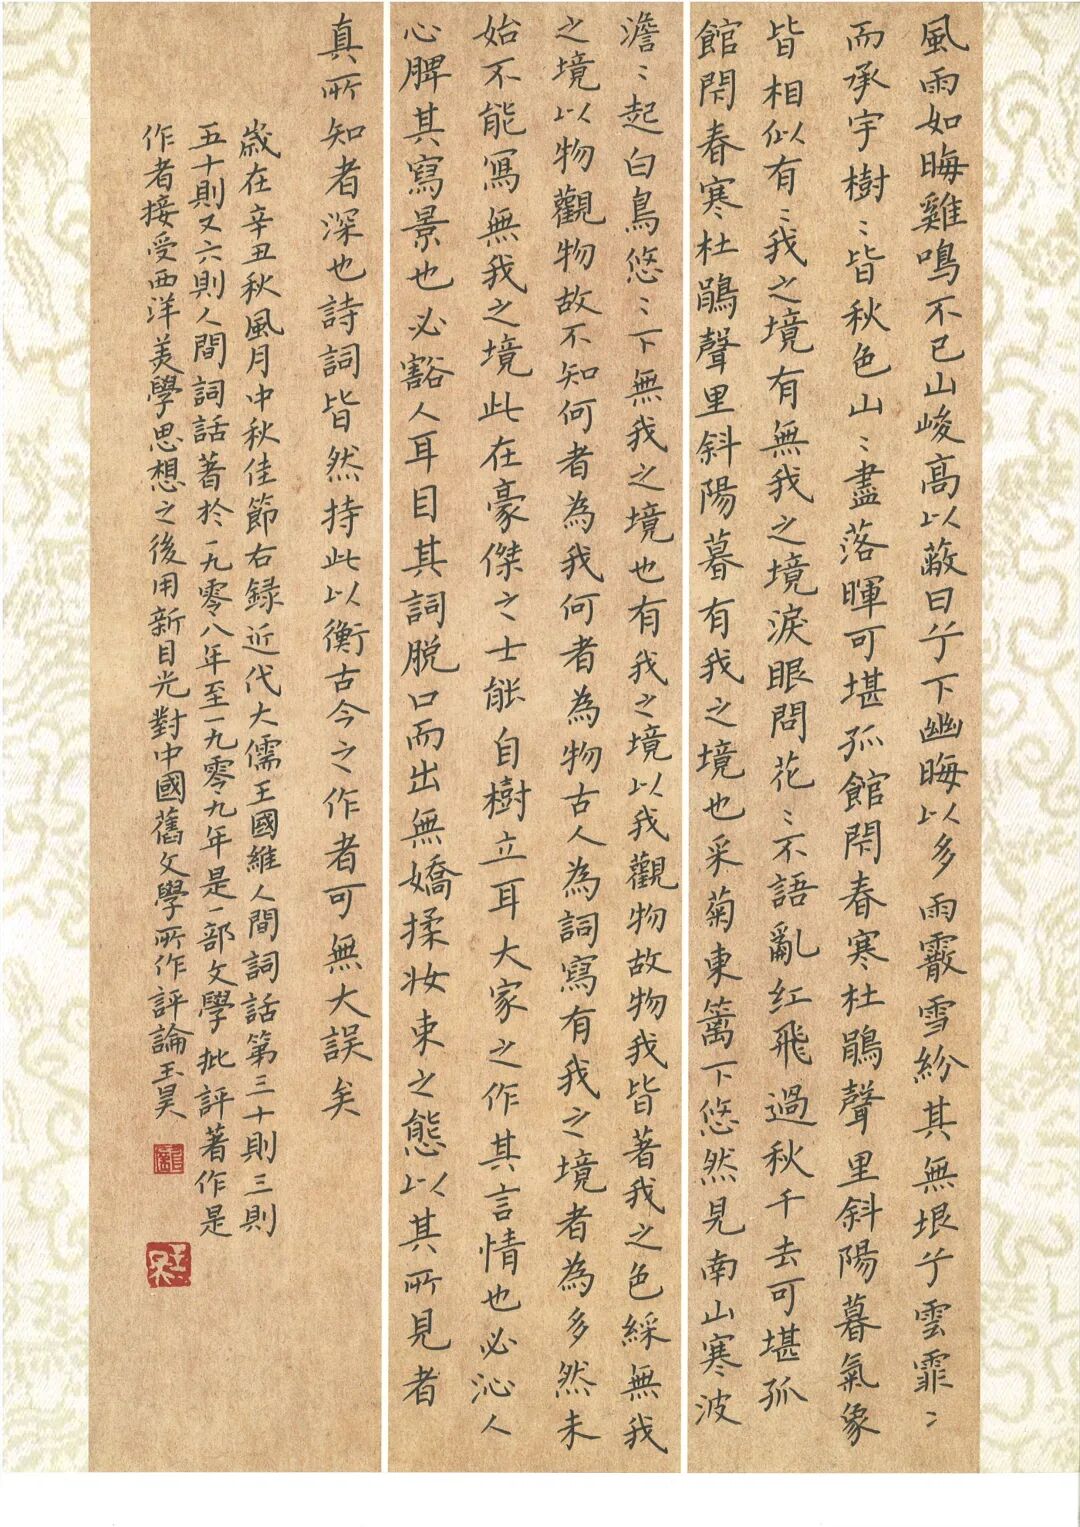 風雨如晦雞鳴不已山峻高以蔽日兮下幽晦以多雨霰雪紛其無垠兮雲霏〻
而承宇樹〻皆秋色山〻盡落暉可堪孤館閇春寒杜鵑聲里斜陽暮氣象
皆相似有〻我之境有無我之境淚眼問花〻不語亂红飛過秋千去可堪孤
館閇春寒杜鵑聲里斜陽暮有我之境也采菊東籬下悠然見南山寒波
澹〻起白鳥悠〻下無我之境也有我之境以我觀物故物我皆著我之色綵無我
之境以物觀物故不知何者為我何者為物古人為詞寫有我之境者為多然未
始不能寫無我之境此在豪傑之士能自樹立耳大家之作其言情也必沁人
心脾其寫景也必豁人耳目其詞脱口而出無嬌揉妆束之態以其所見者
真所知者深也詩詞皆然持此以衡古今之作者可無大誤矣
歲在辛丑秋風月中秋佳節右録近代大儒王國維人間詞話第三十則三則
五十則又六則人間詞話著於一九零八年至一九零九年是一部文學批評著作是
作者接受西洋美學思想之後用新目光對中國舊文學所作評論玉昊